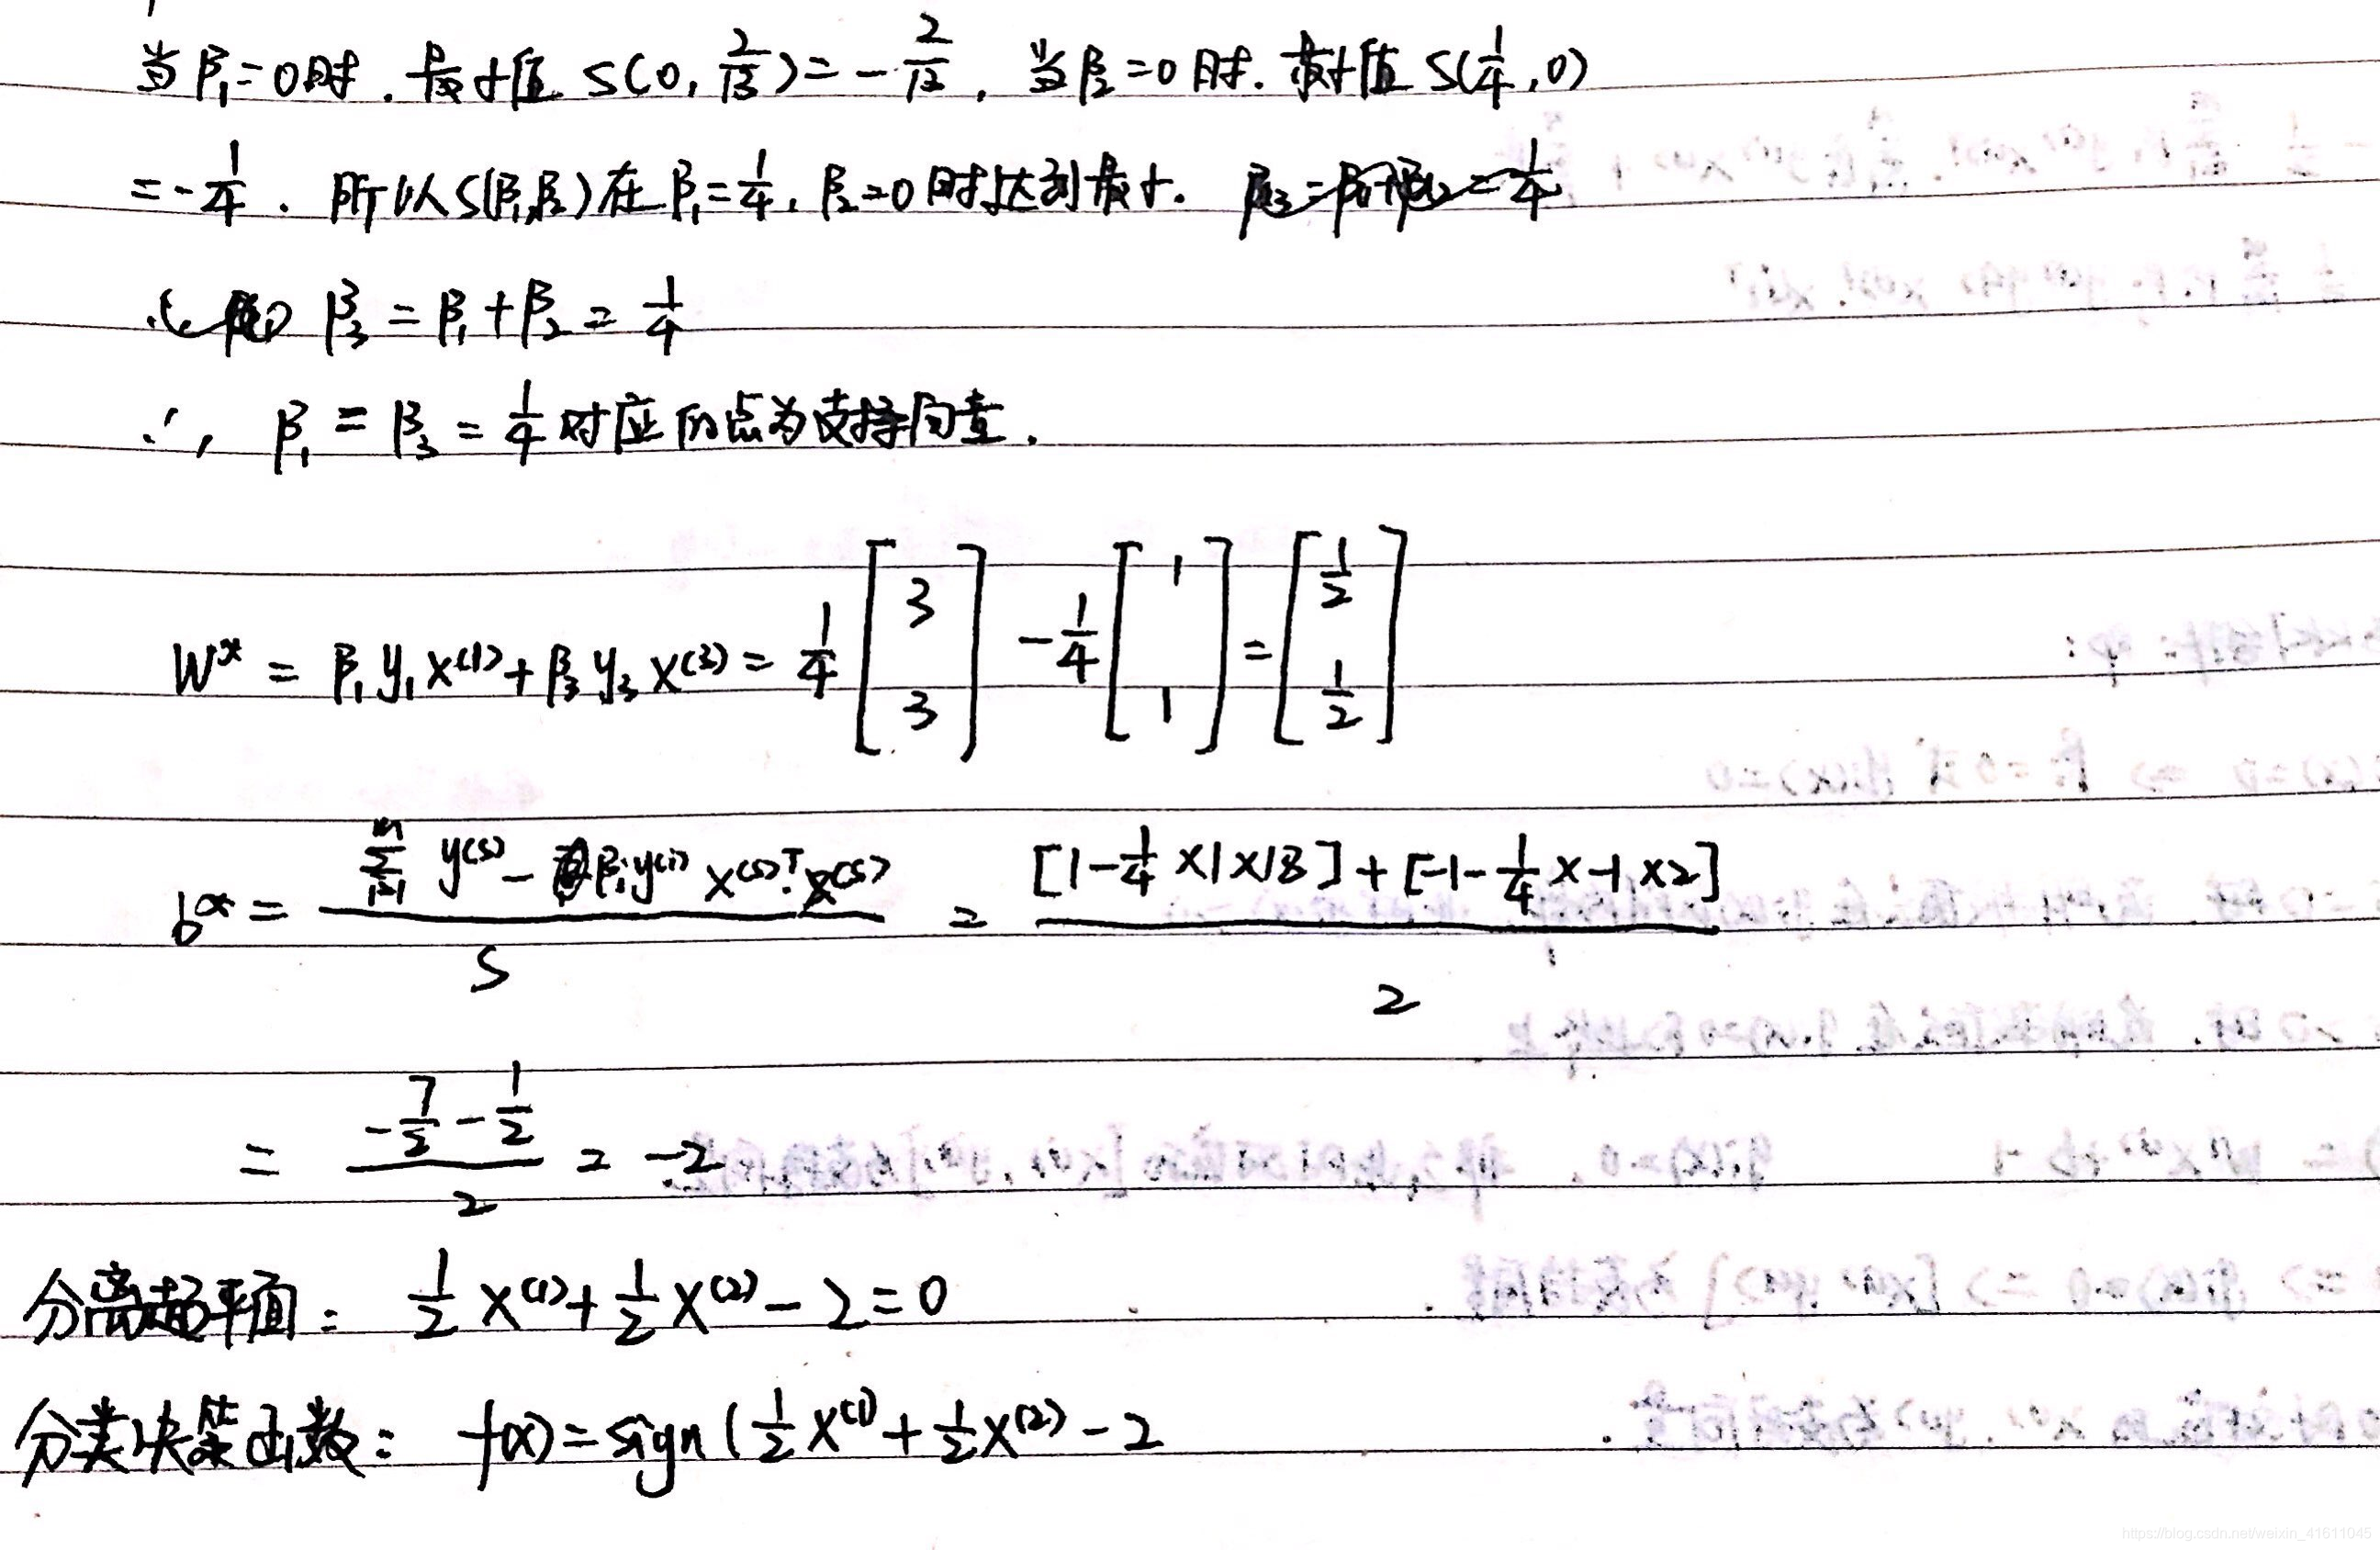 当β₁=0时. 最小值 S(0, 2/13)=-2/13, 当β₂=0时. 最小值 S(1/4, 0)
=-1/4. 所以S(β₁,β₂)在β₁=1/4, β₂=0时达到最小.
β₃ = β₁+β₂ = 1/4
∴, β₁ = β₃ = 1/4 对应的点为支持向量.
W* = β₁y₁x⁽¹⁾+β₃y₃x⁽³⁾ = 1/4 [3 3] - 1/4 [1 1] = [1/2 1/2]
b* = (∑ᵢ₌₁ᵐ y⁽ˢ⁾ - βᵢy⁽ⁱ⁾ x⁽ˢ⁾ᵀ·x⁽ˢ⁾) / S = ([1-1/4×1×18]+[-1-1/4×-1×2]) / 2
= (-7/2 - 1/2) / 2 = -2
分离超平面: 1/2 x⁽¹⁾+1/2 x⁽²⁾-2=0
分类决策函数: f(x)=sign(1/2 x⁽¹⁾+1/2 x⁽²⁾-2
https://blog.csdn.net/weixin_41611045